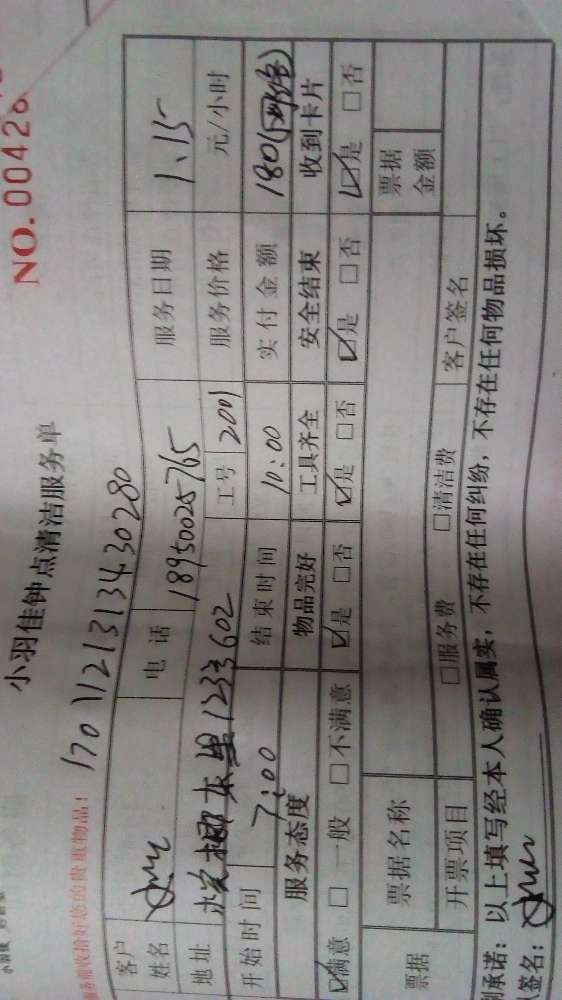 NO.00426
小羽佳钟点清洁服务单
1701121313430280
收拾好您的贵重物品！
客户姓名 电话 18950025765 服务日期 1.15
地址 东里1233602 工号 2001 服务价格 元/小时
开始时间 7:00 结束时间 10:00 实付金额 180(网络)
服务态度 物品完好 工具齐全 安全结束 收到卡片
☑满意 □一般 □不满意 ☑是 □否 ☑是 □否 ☑是 □否 ☑是 □否
票据 票据名称 票据金额
开票项目 □服务费 □清洁费 客户签名
承诺：以上填写经本人确认属实，不存在任何纠纷，不存在任何物品损坏。
签名：